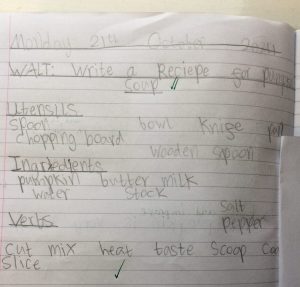 Monday 21st October
WALT: Write a Reciepe for pumpkin
Soup
Utensils
spoon bowl Knige pan
chopping board
wooden spoon
Ingredients
pumpkin butter milk
water stock
salt
Verbs pepper
cut mix heat taste Scoop
Slice